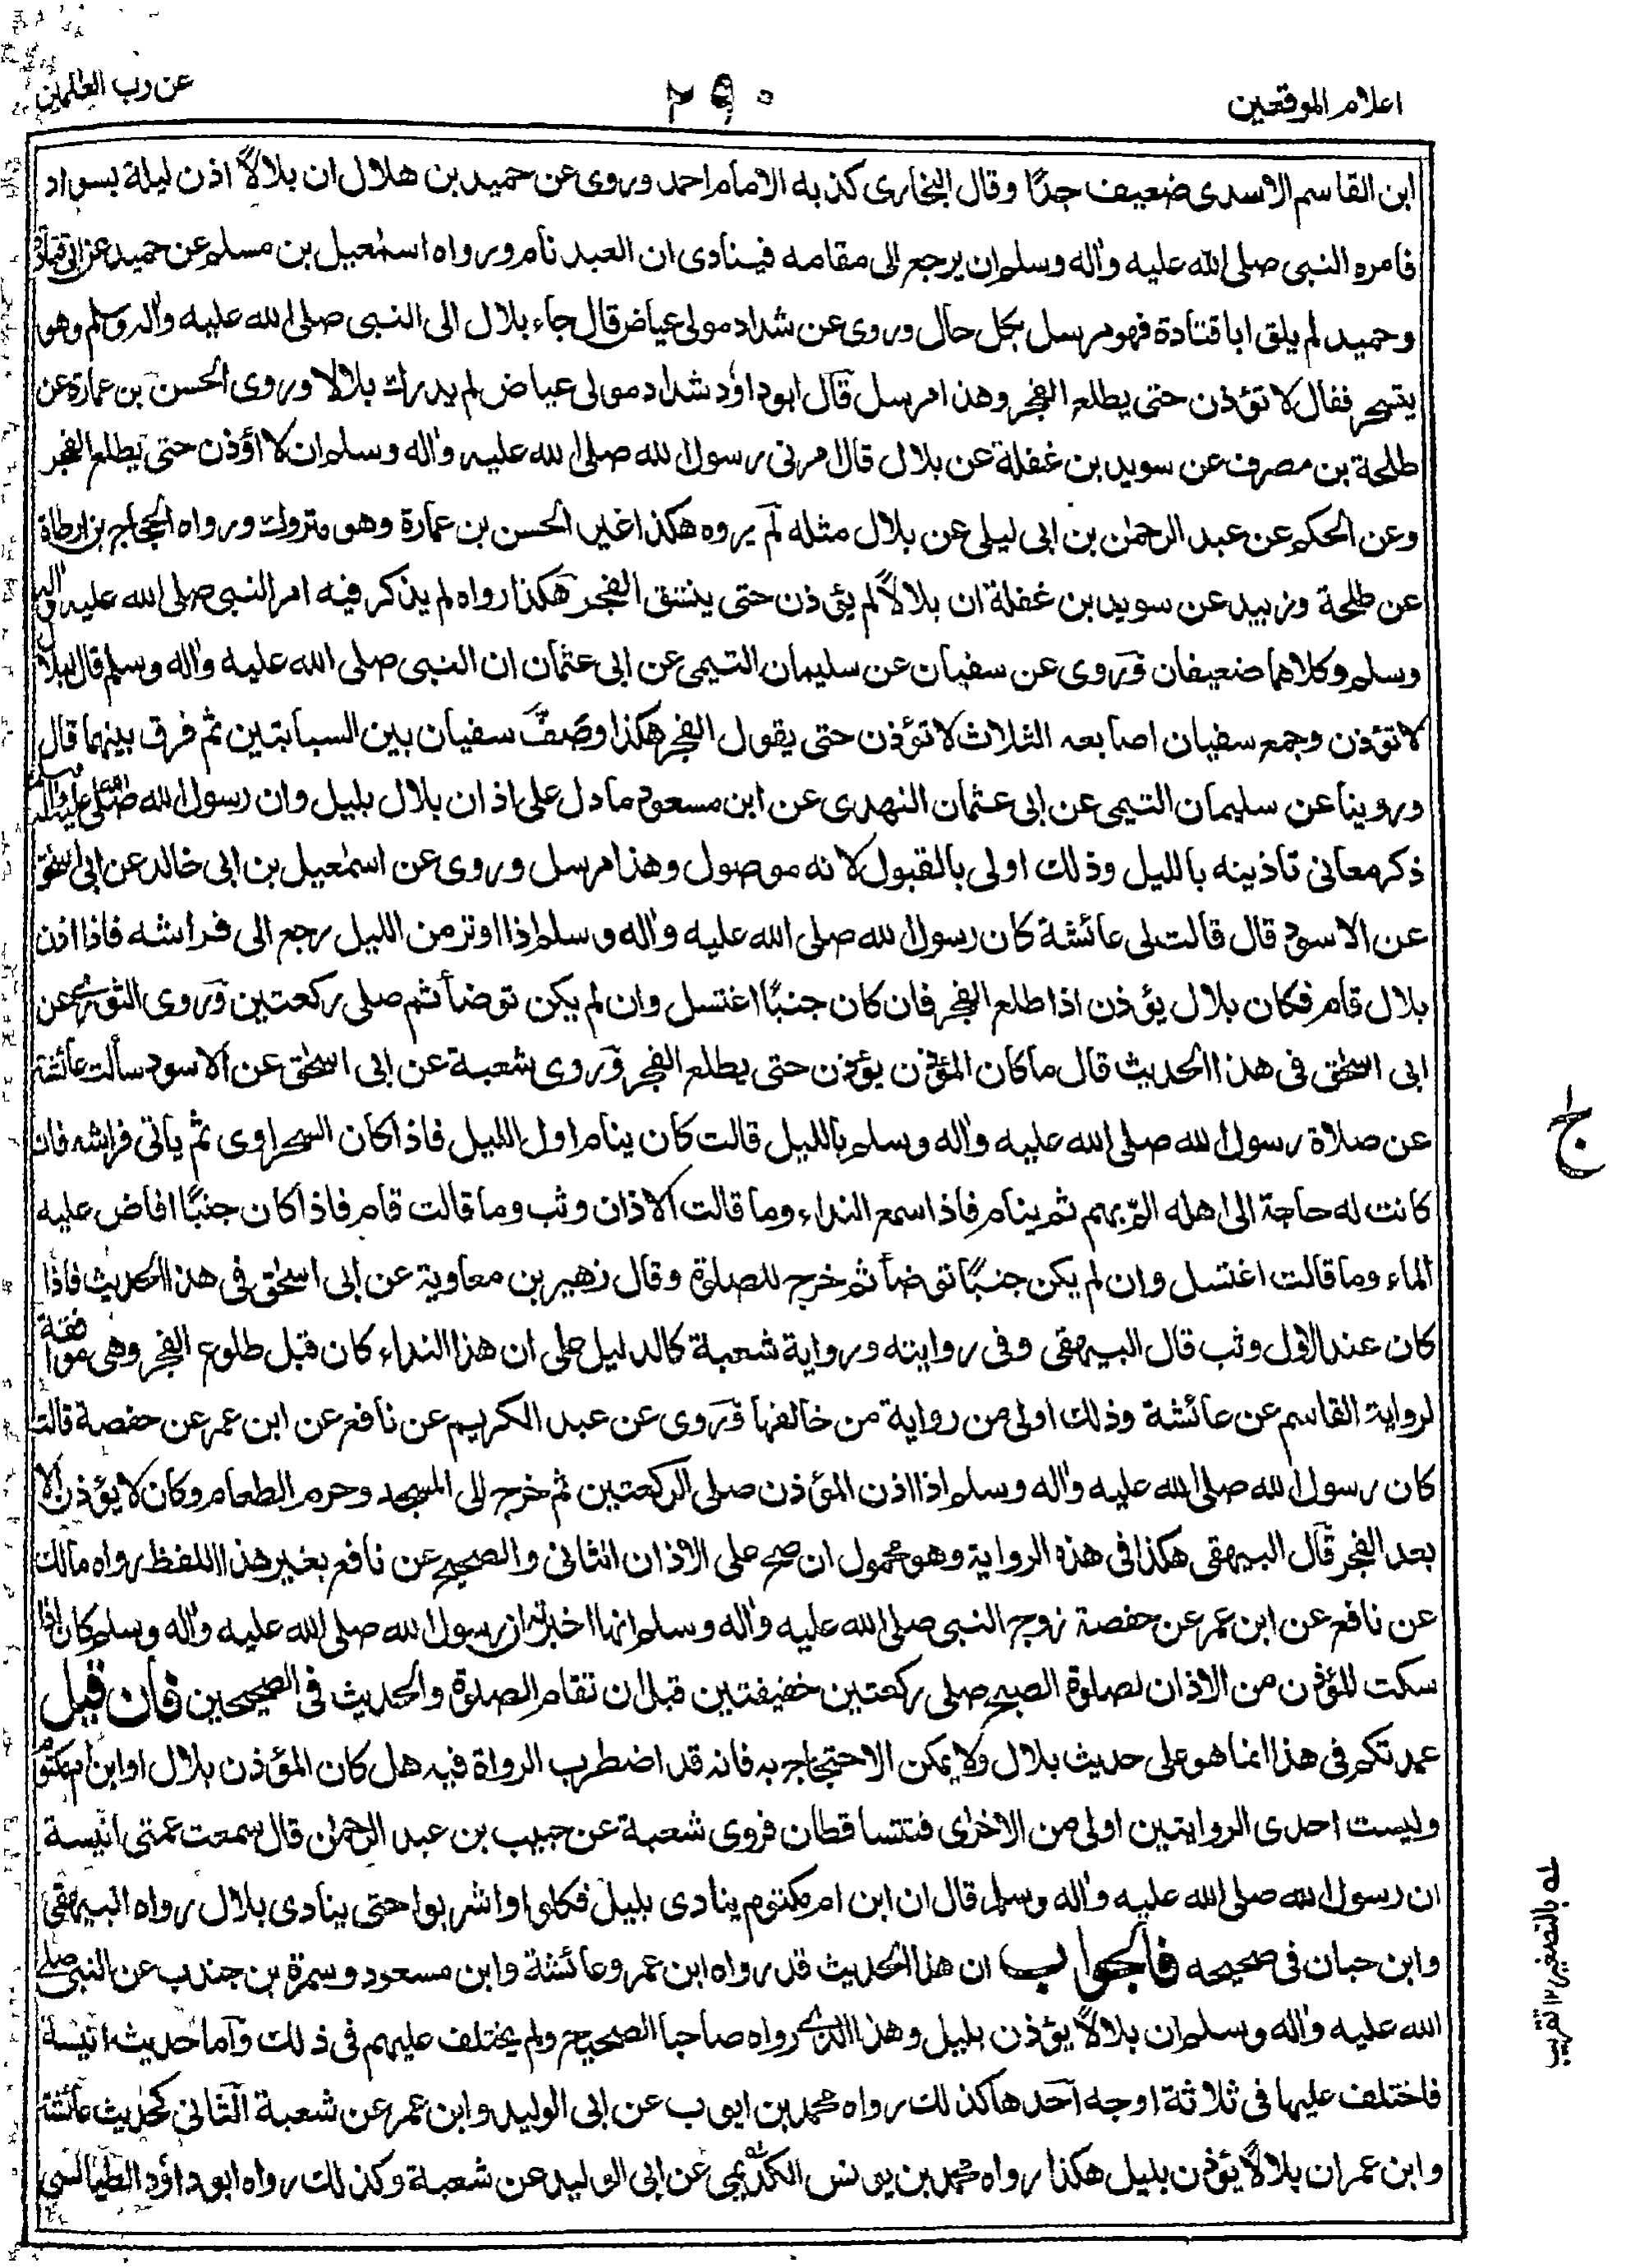 اعلام الموقعين
٢٩٠
عن رب العٰلمين
ابن القاسم الاسدى ضعيف جدًا وقال البخارى كذبه الامام احمد وروى عن حميد بن هلال ان بلالًا اذن ليلة بسواد
فامره النبى صلى الله عليه واٰله وسلم ان يرجع الى مقامه فينادى ان العبد نام ورواه اسمٰعيل بن مسلم عن حميد عن ابى قتادة
وحميد لم يلق ابا قتادة فهو مرسل بكل حال وروى عن شداد مولى عياض قال جاء بلال الى النبى صلى الله عليه واٰله وسلم وهو
يتسحر فقال لا تؤذن حتى يطلع الفجر وهذا مرسل قال ابو داؤد شداد مولى عياض لم يدرك بلالا وروى الحسن بن عمارة عن
طلحة بن مصرف عن سويد بن غفلة عن بلال قال امرنى رسول الله صلى الله عليه واٰله وسلم ان لا اؤذن حتى يطلع الفجر
وعن الحكم عن عبد الرحمٰن بن ابى ليلى عن بلال مثله لم يروه هكذا غير الحسن بن عمارة وهو متروك ورواه الحجاج بن ارطاة
عن طلحة وزبيد عن سويد بن غفلة ان بلالًا لم يؤذن حتى ينشق الفجر هكذا رواه لم يذكر فيه امر النبى صلى الله عليه واٰله
وسلم وكلاهما ضعيفان وروى عن سفيان عن سليمان التيمى عن ابى عثمان ان النبى صلى الله عليه واٰله وسلم قال لبلال
لا تؤذن وجمع سفيان اصابعه الثلاث لا تؤذن حتى يقول الفجر هكذا وصَفَّ سفيان بين السبابتين ثم فرق بينهما قال
وروينا عن سليمان التيمى عن ابى عثمان النهدى عن ابن مسعود ما دل على اذان بلال بليل وان رسول الله صلى الله عليه واٰله وسلم
ذكر معانى تاذينه بالليل وذلك اولى بالقبول لانه موصول وهذا مرسل وروى عن اسمٰعيل بن ابى خالد عن ابى اسحٰق
عن الاسود قال قالت لى عائشة كان رسول الله صلى الله عليه واٰله وسلم اذا اوتر من الليل رجع الى فراشه فاذا اذن
بلال قام فكان بلال يؤذن اذا طلع الفجر فان كان جنبًا اغتسل وان لم يكن توضأ ثم صلى ركعتين وروى الثورى عن
ابى اسحٰق فى هذا الحديث قال ما كان المؤذن يؤذن حتى يطلع الفجر وروى شعبة عن ابى اسحٰق عن الاسود سألت عائشة
عن صلاة رسول الله صلى الله عليه واٰله وسلم بالليل قالت كان ينام اول الليل فاذا كان السحر اوى ثم ياتى فراشه فان
كانت له حاجة الى اهله الرّ بهم ثم ينام فاذا سمع النداء وما قالت الاذان وثب وما قالت قام فاذا كان جنبًا افاض عليه
الماء وما قالت اغتسل وان لم يكن جنبًا توضأ ثم خرج للصلوة وقال زهير بن معاوية عن ابى اسحٰق فى هذا الحديث فاذا
كان عند الاول وثب قال البيهقى وفى روايته ورواية شعبة كالدليل على ان هذا النداء كان قبل طلوع الفجر وهى موافقة
لرواية القاسم عن عائشة وذلك اولى من رواية من خالفها وروى عن عبد الكريم عن نافع عن ابن عمر عن حفصة قالت
كان رسول الله صلى الله عليه واٰله وسلم اذا اذن المؤذن صلى الركعتين ثم خرج الى المسجد وحرم الطعام وكان لا يؤذن الا
بعد الفجر قال البيهقى هكذا فى هذه الرواية وهو محمول ان صح على الاذان الثانى والصحيح عن نافع بغير هذا اللفظ رواه مالك
عن نافع عن ابن عمر عن حفصة زوج النبى صلى الله عليه واٰله وسلم انها اخبرته ان رسول الله صلى الله عليه واٰله وسلم كان اذا
سكت المؤذن من الاذان لصلوة الصبح صلى ركعتين خفيفتين قبل ان تقام الصلوة والحديث فى الصحيحين فان قيل
عمدتكم فى هذا انما هو على حديث بلال ولا يمكن الاحتجاج به فانه قد اضطرب الرواة فيه هل كان المؤذن بلال او ابن ام مكتوم
وليست احدى الروايتين اولى من الاخرٰى فتتساقطان فروى شعبة عن حبيب بن عبد الرحمٰن قال سمعت عمتى انيسة
ان رسول الله صلى الله عليه واٰله وسلم قال ان ابن ام مكتوم ينادى بليل فكلوا واشربوا حتى ينادى بلال رواه البيهقى
وابن حبان فى صحيحه فالجواب ان هذا الحديث قد رواه ابن عمر وعائشة وابن مسعود وسمرة بن جندب عن النبى صلى
الله عليه واٰله وسلم ان بلالًا يؤذن بليل وهذا الذى رواه صاحبا الصحيح ولم يختلف عليهم فى ذلك واما حديث انيسة
فاختلف عليها فى ثلاثة اوجه احدها كذلك رواه محمد بن ايوب عن ابى الوليد وابن عمر عن شعبة الثانى كحديث عائشة
وابن عمر ان بلالًا يؤذن بليل هكذا رواه محمد بن يونس الكديمى عن ابى الوليد عن شعبة وكذلك رواه ابو داؤد الطيالسى
ج
له بالتصغير ١٢ تقريب